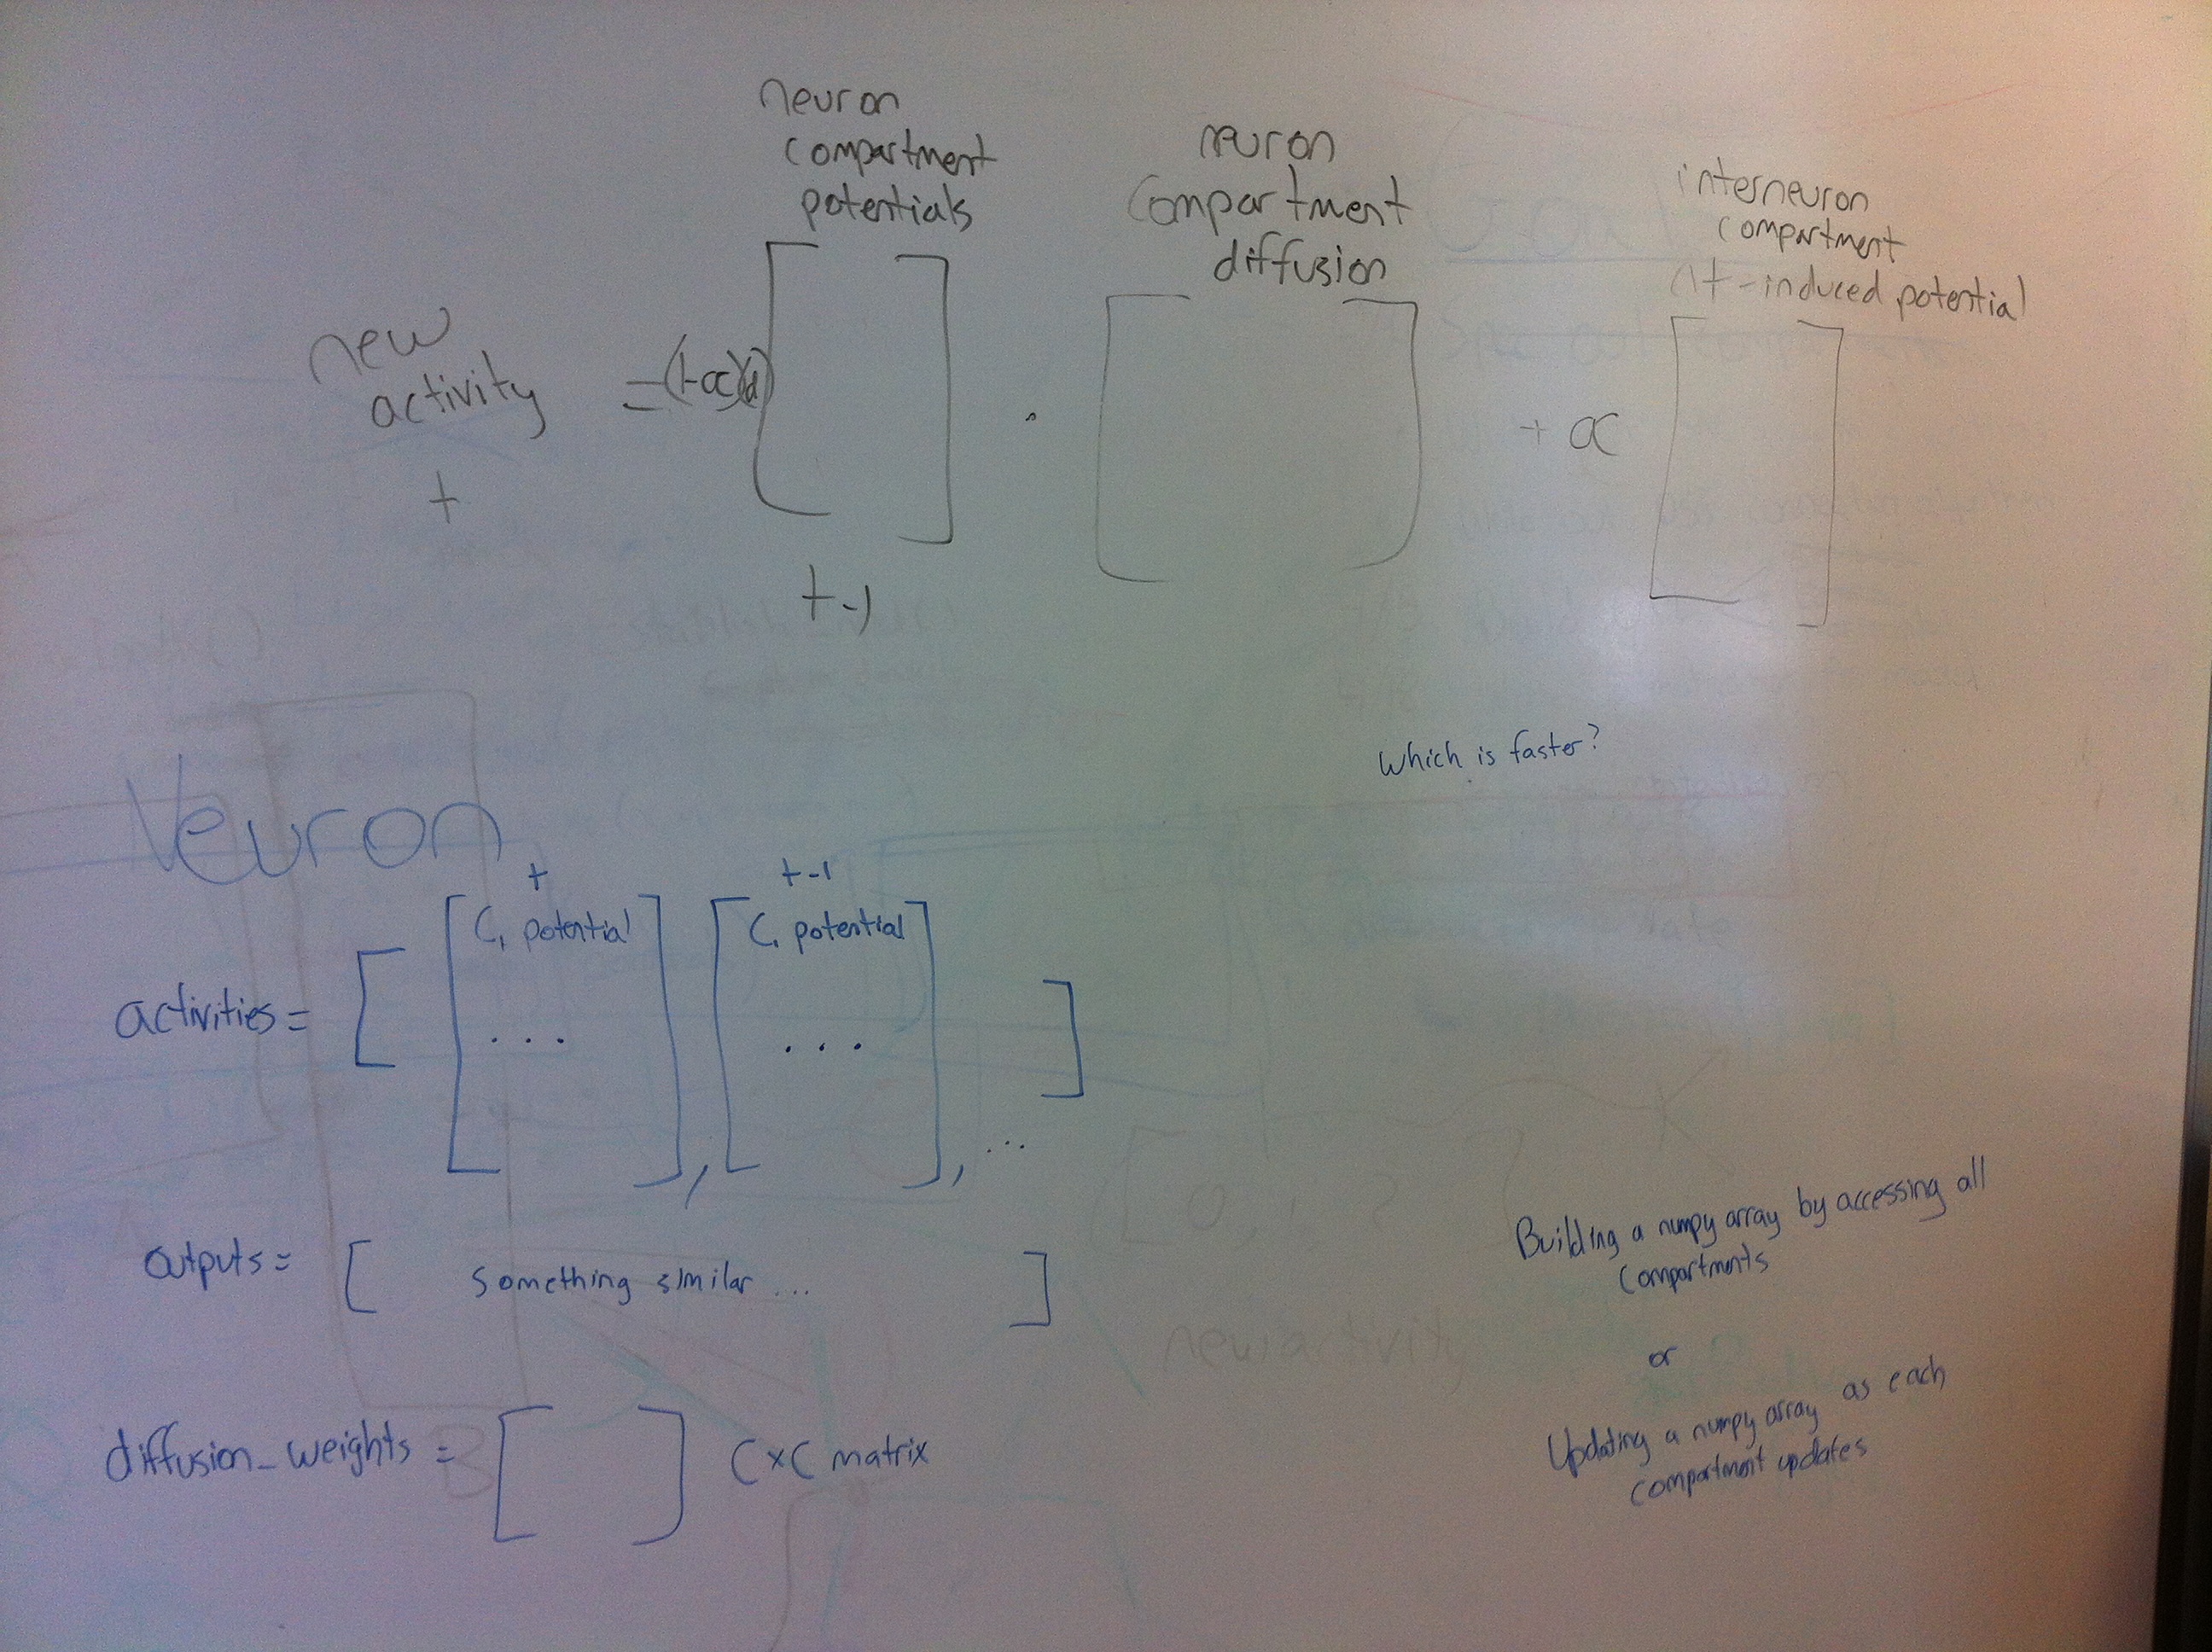 neuron
compartment
potentials
neuron
compartment
diffusion
interneuron
compartment
-induced potential
new
activity
t
= (1-α)(d) [ ] · [ ] + α [ ]
t-1
Which is faster?
Neuron
t
t-1
C1 potential
C1 potential
activities = [ [ ... ], [ ... ], ... ]
outputs = [ something similar ... ]
diffusion_weights = [ ] C×C matrix
Building a numpy array by accessing all
compartments
or
Updating a numpy array as each
compartment updates
new activity